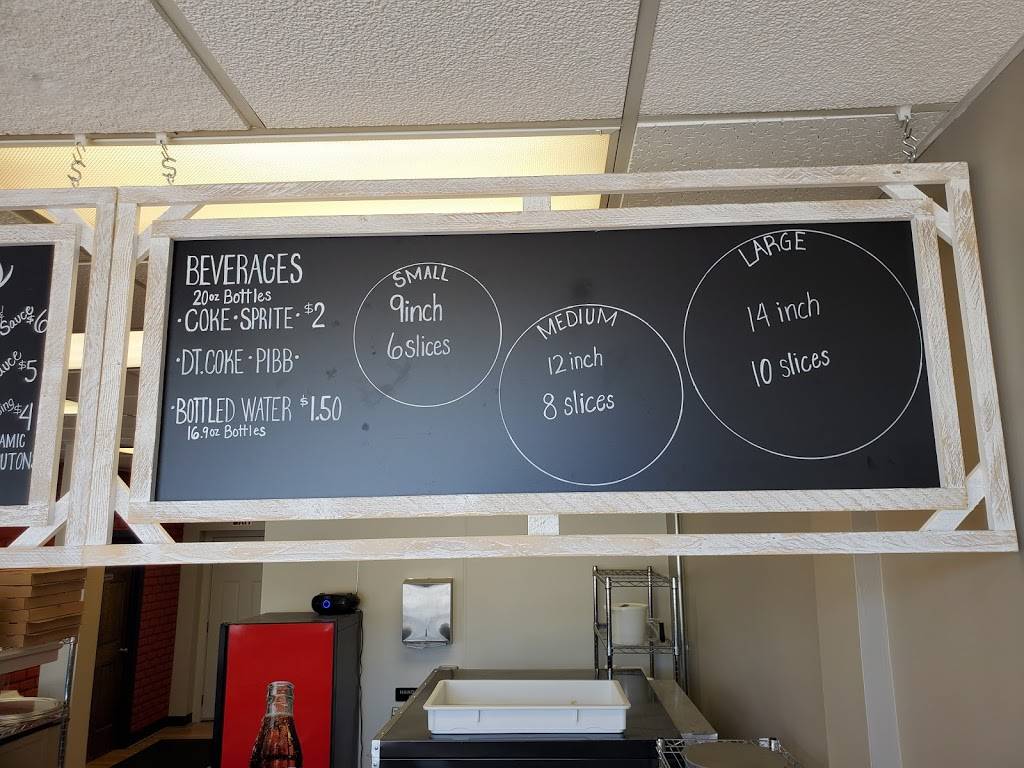 Sauce $6
$5
$4
BEVERAGES
20oz Bottles
•COKE•SPRITE•$2
•DT.COKE•PIBB•
•BOTTLED WATER $1.50
16.9oz Bottles
SMALL
9inch
6 slices
MEDIUM
12 inch
8 slices
LARGE
14 inch
10 slices